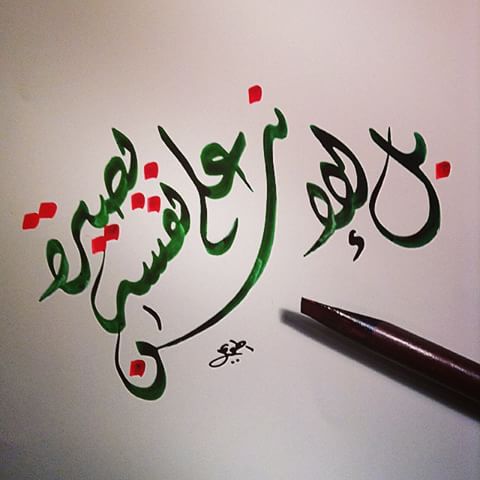 بل الإنسان على نفسه بصيرة